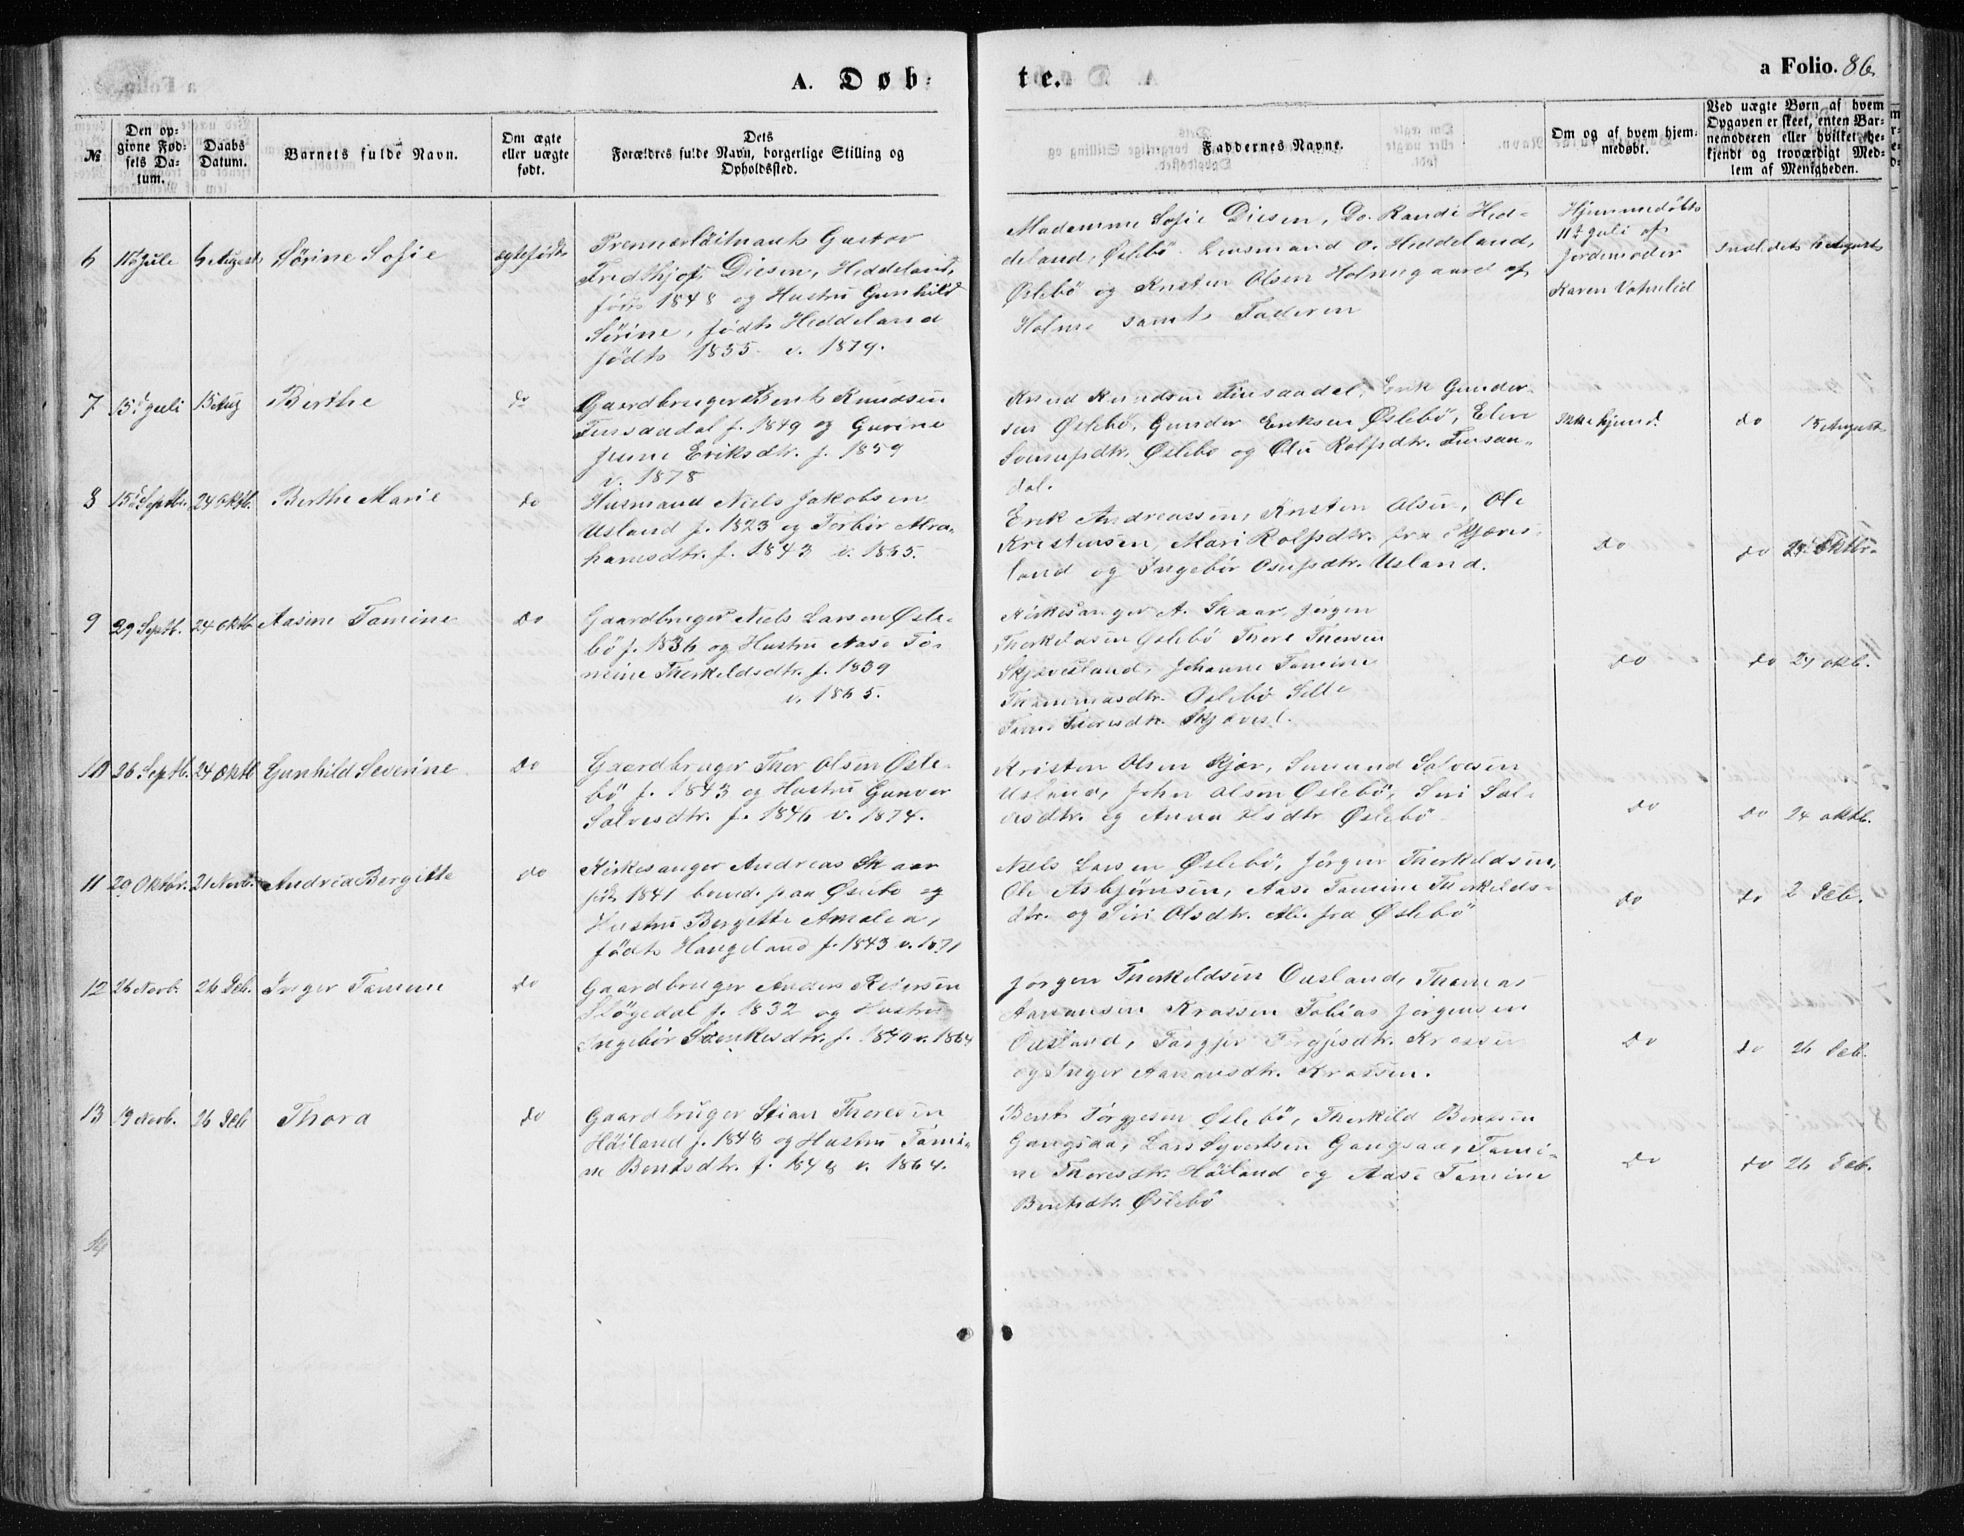 A. Døb-
te.
a Folio. 86.
№
Den op-
givne Fød-
sels Da-
tum.
Daabs
Datum.
Barnets fulde Navn.
Om ægte
eller uægte
født.
Dets
Forældres fulde Navn, borgerlige Stilling og
Opholdssted.
Faddernes Navne.
Om og af hvem hjem-
medøbt.
Ved uægte Børn af hvem
Opgaven er skeet, enten Bar-
nemoderen eller hvilket be-
kjendt og troværdigt Med-
lem af Menigheden.
6
11te Jule
6 August
Sørine Sofie
ægtefødt
Premierløitnant Gustav
Fridthjof Diesen, Heddeland,
født 1848 og Hustru Gunhild
Sørine, født Heddeland
født 1855 v. 1879.
Madamme Sofie Diesen, Do. Randi Hed-
deland, Øslebö. Lensmand O. Heddeland,
Øslebö og Kristen Olsen Holmegaard af
Holme samt Faderen
Hjemmedöbt
11te Juli af
Jordemoder
Karen Vatnelid
6 August
7
15de Juli
15 Aug
Berthe
do
Gaardbruger Bent Knudsen
Finsaadal f. 1849 og Gurine
Eriksdtr. f. 1859
v. 1878
Knud Knudsen Finsaadal, Erik Gunder-
sen Øslebö, Gunder Eriksen Øslebö, Elen
Øslebö og Rolfsdtr. Finsaa-
dal.
do
15 August
8
15de Septb.
24 Oktb.
Berthe Marie
do
Husmand Niels Jakobsen
Usland f. 1823 og Torbör Abra-
hamsdtr. f. 1843 v. 1865.
Erik Andreassen, Kristen Olsen, Ole
Kristensen, Mari Rolfsdtr. fra Skjæves-
land og Ingebör Osufsdtr. Usland.
do
do 24 Oktbr.
9
29 Septb.
24 Oktb.
Aasine Tomine
do
Gaardbruger Niels Larsen Øsle-
bö f. 1836 og Hustru Aase To-
mine Therkildsdtr. f. 1839
v. 1865.
Kirkesanger A. Skaar, Jørgen
Therkildsen Øslebö Thore Thorsen
Skjævesland, Johanne Tomine
Thommasdtr. Øslebö
Thoresdtr. Skjævesl.
do
do 24 oktb.
10
26 Septb.
24 Oktb
Gunhild Severine
do
Gaardbruger Thor Olsen Øsle-
bö f. 1843 og Hustru Gunvor
Salvesdtr. f. 1846 v. 1874.
Kristen Olsen Kjær, Salvesen
Usland, John Olsen Øslebö, Siri Sal-
vesdtr. og Anna Øslebö
do
do 24 oktb.
11
20 Oktbr.
21 Novb.
Andrea Bergitte
do
Kirkesanger Andreas Skaar
født 1841 boende paa Øslebö og
Hustru Bergitte Amalea,
født Haugeland f. 1843 v. 1871
Niels Larsen Øslebö, Jørgen Therkildsen,
Ole Asbjörnsen, Aase Tomine Therkilds-
dtr. og Siri Olsdtr. Alle fra Øslebö
do
do 2 Deb.
12
26 Novb.
26 Deb.
Inger Tomine
do
Gaardbruger Anders Reiersen
Sløgedal f. 1832 og Hustru
Ingebör f. 1840 v. 1864
Jørgen Therkildsen Ousland, Thomas
Aanansen Krossen Tobias Jørgensen
Ousland, Krossen
og Inger Aanansdtr. Krossen.
do
do 26 Deb.
13
19 Novb.
26 Deb
Thora
do
Gaardbruger Stian Thoresen
Høiland f. 1848 og Hustru Tomi-
ne Bentsdtr. f. 1848 v. 1864.
Bent Torgjesen Øslebö, Therkild Bentsen
Gangsaa, Lars Syvertsen Gangsaa, Tomi-
ne Thoresdtr. Høiland og Aase Tomine
Bentsdtr. Øslebö
do
do 26 Deb.
14